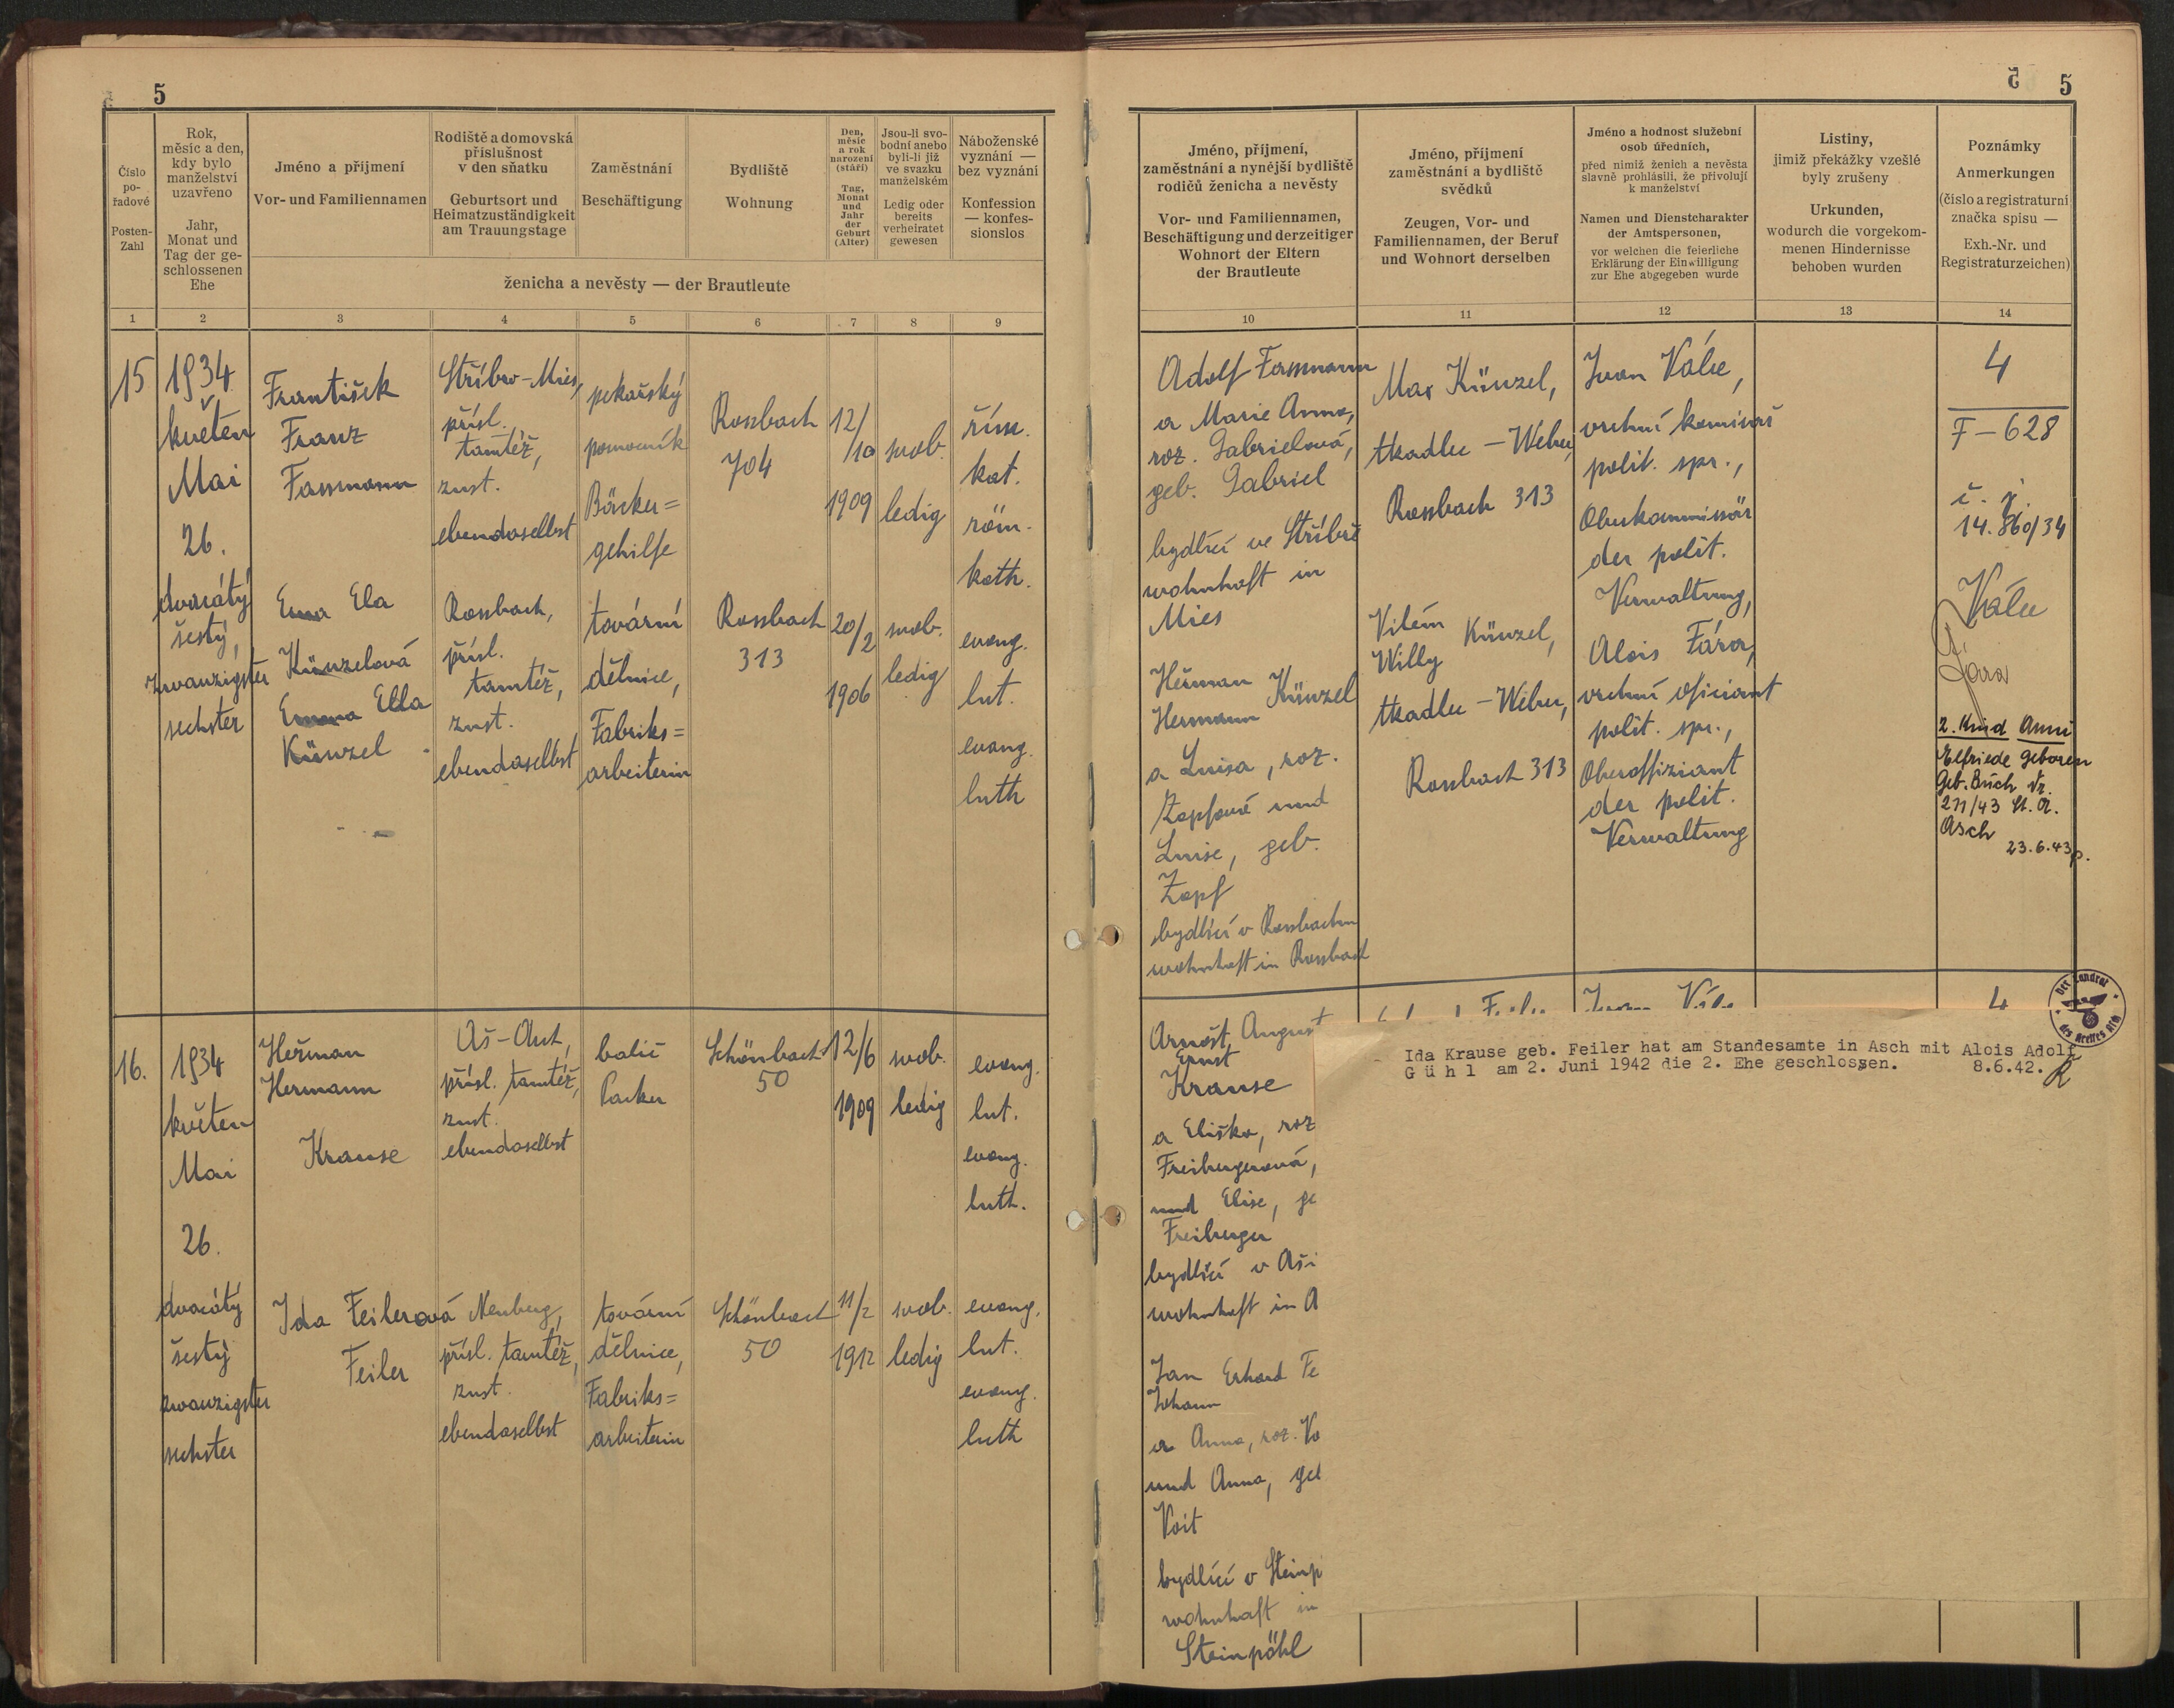 5
Číslo
po-
řadové
Posten-
Zahl
Rok,
měsíc a den,
kdy bylo
manželství
uzavřeno
Jahr,
Monat und
Tag der ge-
schlossenen
Ehe
Jméno a příjmení
Vor- und Familiennamen
Rodiště a domovská
příslušnost
v den sňatku
Geburtsort und
Heimatzuständigkeit
am Trauungstage
Zaměstnání
Beschäftigung
Bydliště
Wohnung
Den,
měsíc
a rok
narození
(stáří)
Tag,
Monat
und
Jahr
der
Geburt
(Alter)
Jsou-li svo-
bodní anebo
byli-li již
ve svazku
manželském
Ledig oder
bereits
verheiratet
gewesen
Náboženské
vyznání —
bez vyznání
Konfession
— konfes-
sionslos
ženicha a nevěsty — der Brautleute
1
2
3
4
5
6
7
8
9
15
1934
květen
Mai
26.
dvacátý
šestý,
zwanzigster
sechster
František
Franz
Fassmann
Stříbro-Mies,
přísl.
tamtéž,
zust.
ebendaselbst
pekařský
pomocník
Bäcker=
gehilfe
Rossbach
704
12/
/10
1909
svob.
ledig
řím.
kat.
röm.
kath.
Ema Ela
Künzelová
Emma Ella
Künzel
Rossbach,
přísl.
tamtéž,
zust.
ebendaselbst
tovární
dělnice,
Fabriks=
arbeiterin
Rossbach
313
20/2
1906
svob.
ledig
evang.
lut.
evang.
luth
16.
1934
květen
Mai
26.
dvacátý
šestý
zwanzigster
sechster
Heřman
Hermann
Krause
Aš-Asch,
přísl. tamtéž,
zust.
ebendaselbst
balič
Packer
Schönbach
50
12/6
1909
svob.
ledig
evang.
lut.
evang.
luth.
Ida Feilerová
Feiler
Neuberg,
přísl. tamtéž,
zust.
ebendaselbst
tovární
dělnice,
Fabriks=
arbeiterin
Schönbach
50
11/2
1912
svob.
ledig
evang.
lut.
evang.
luth
5 5
Jméno, příjmení,
zaměstnání a nynější bydliště
rodičů ženicha a nevěsty
Vor- und Familiennamen,
Beschäftigung und derzeitiger
Wohnort der Eltern
der Brautleute
Jméno, příjmení
zaměstnání a bydliště
svědků
Zeugen, Vor- und
Familiennamen, der Beruf
und Wohnort derselben
Jméno a hodnost služební
osob úředních,
před nimiž ženich a nevěsta
slavně prohlásili, že přivolují
k manželství
Namen und Dienstcharakter
der Amtspersonen,
vor welchen die feierliche
Erklärung der Einwilligung
zur Ehe abgegeben wurde
Listiny,
jimiž překážky vzešlé
byly zrušeny
Urkunden,
wodurch die vorgekom-
menen Hindernisse
behoben wurden
Poznámky
Anmerkungen
(číslo a registraturní
značka spisu —
Exh.-Nr. und
Registraturzeichen)
10
11
12
13
14
Adolf Fassmann
a Marie Anna,
roz. Gabrielová,
geb. Gabriel
bydlící ve Stříbře
wohnhaft in
Mies
Heřman
Hermann Künzel
a Luisa, roz.
Zopfová und
Luise, geb.
Zopf
bydlící v Rossbachu
wohnhaft in Rossbach
Max Künzel,
tkadlec - Weber,
Rossbach 313
Vilém
Willy Künzel,
tkadlec - Weber,
Rossbach 313
Ivan Válec,
vrchní komisař
polit. spr.,
Oberkommissär
der polit.
Verwaltung,
Alois Fára,
vrchní oficiant
polit. spr.,
Oberoffiziant
der polit.
Verwaltung
4
F-628
č. j.
14.860/34
Válec
Fára
2. Kind Anni
Elfriede geboren
Geb. Buch Nr.
211/43 St. A.
Asch
23.6.43
Arnošt August
Ernst
Krause
a Eliška, roz
Freibergerová,
und Elise, ge
Freiberger
bydlící v Aši
wohnhaft in A
Jan Erhard Fe
Johann
a Anna, roz. Vo
und Anna, gel
Voit
bydlící v Steinp
wohnhaft in
Steinpöhl
4
Der Landrat
des Kreises Asch
Ida Krause geb. Feiler hat am Standesamte in Asch mit Alois Adolf
G ü h l am 2. Juni 1942 die 2. Ehe geschlossen. 8.6.42.